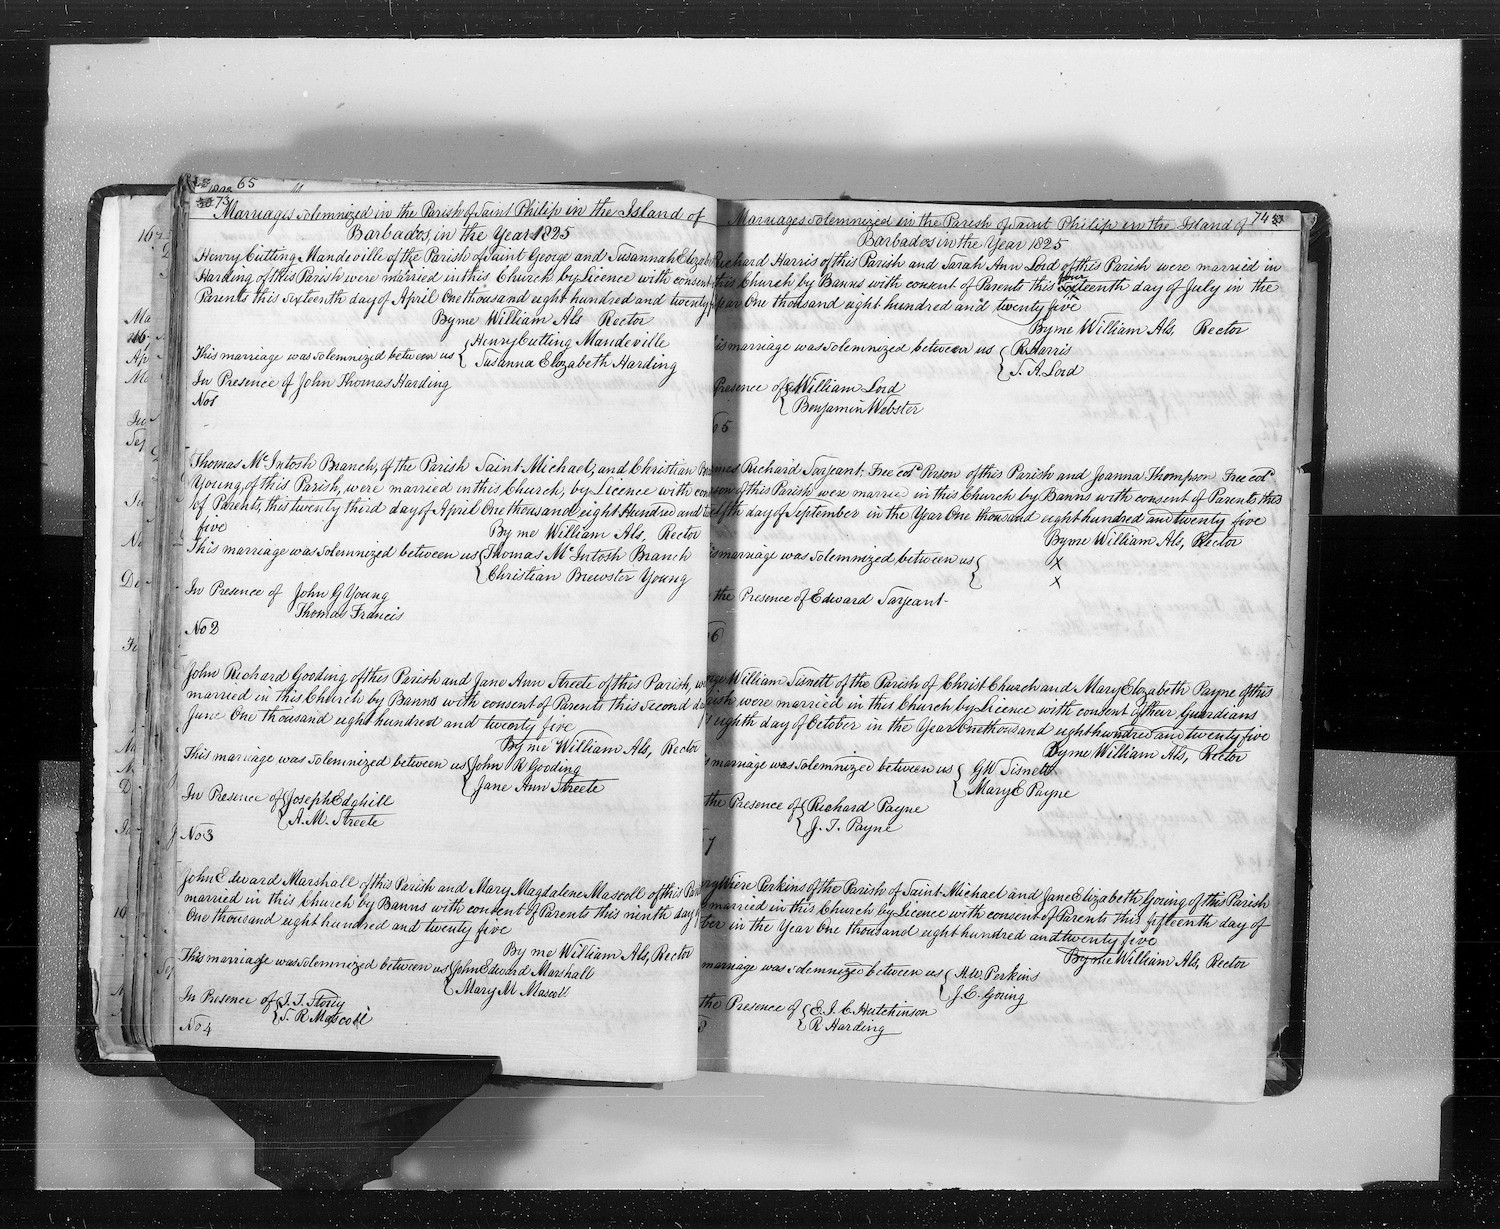 65
73
Marriages solemnized in the Parish of Saint Philip in the Island of
Barbados, in the Year 1825
Henry Cutting Mandeville of the Parish of Saint George and Susannah Elizab
Harding of this Parish were married in this Church by Licence with consent
Parents this sixteenth day of April One thousand eight hundred and twenty f
By me William Als Rector
This marriage was solemnized between us { Henry Cutting Mandeville
Susanna Elizabeth Harding
In Presence of John Thomas Harding
No 1
Thomas McIntosh Branch, of the Parish Saint Michael, and Christian Br
Young, of this Parish, were married in this Church, by Licence with con
of Parents, this twenty third day of April One thousand eight Hundred and tw
five
By me William Als, Rector
This marriage was solemnized between us { Thomas McIntosh Branch
Christian Brewster Young
In Presence of John G Young
Thomas Francis
No 2
John Richard Gooding of this Parish and Jane Ann Streete of this Parish, we
married in this Church by Banns with consent of Parents this second da
June One thousand eight hundred and twenty five
By me William Als, Rector
This marriage was solemnized between us { John R Gooding
Jane Ann Streete
In Presence of { Joseph Edghill
A. M. Streete
No 3
John Edward Marshall of this Parish and Mary Magdalene Mascoll of this Par
married in this Church by Banns with consent of Parents this ninth day
One thousand eight hundred and twenty five
By me William Als, Rector
This marriage was solemnized between us { John Edward Marshall
Mary M Mascoll
In Presence of { J. T. Storey
T. R Mascoll
No 4
74
Marriages solemnized in the Parish of Saint Philip in the Island of
Barbados in the Year 1825
Richard Harris of this Parish and Sarah Ann Lord of this Parish were married in
this Church by Banns with consent of Parents this sixteenth day of July in the
year One thousand eight hundred and twenty five
By me William Als, Rector
is marriage was solemnized between us { R. Harris
S. A. Lord
Presence of { William Lord
Benjamin Webster
o 5
mes Richard Sarjeant Free cold Person of this Parish and Joanna Thompson Free cold
son of this Parish were marrie in this Church by Banns with consent of Parents, this
lfth day of September in the Year One thousand eight hundred and twenty five
By me William Als, Rector
is marriage was solemnized between us { X
X
the Presence of Edward Sarjeant
o 6
ge William Tisnett of the Parish of Christ Church and Mary Elizabeth Payne of this
rish were married in this Church by Licence with consent of their Guardians
eighth day of October in the Year One thousand eight hundred and twenty five
By me William Als, Rector
s marriage was solemnized between us { G W Tisnett
Mary E Payne
the Presence of { Richard Payne
J. T. Payne
7
Perkins of the Parish of Saint Michael and Jane Elizabeth Going of this Parish
married in this Church by Licence with consent of Parents this fifteenth day of
ber in the Year One thousand eight hundred and twenty five
By me William Als, Rector
marriage was solemnized between us { H. W. Perkins
J. E. Going
the Presence of { E. J. C. Hutchinson
R Harding
8